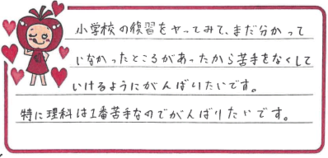 小学校の復習をヤってみて、まだ分かって
いなかったところがあったから苦手をなくして
いけるようにがんばりたいです。
特に理科は1番苦手なのでがんばりたいです。